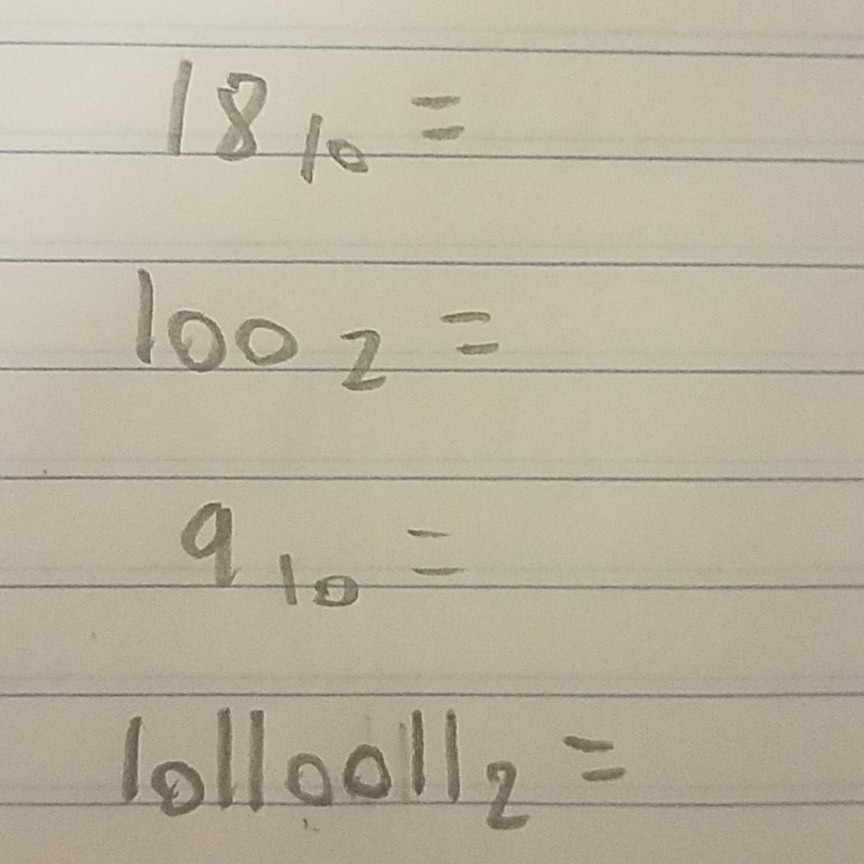 18₁₀ =
100₂ =
9₁₀ =
10110011₂ =